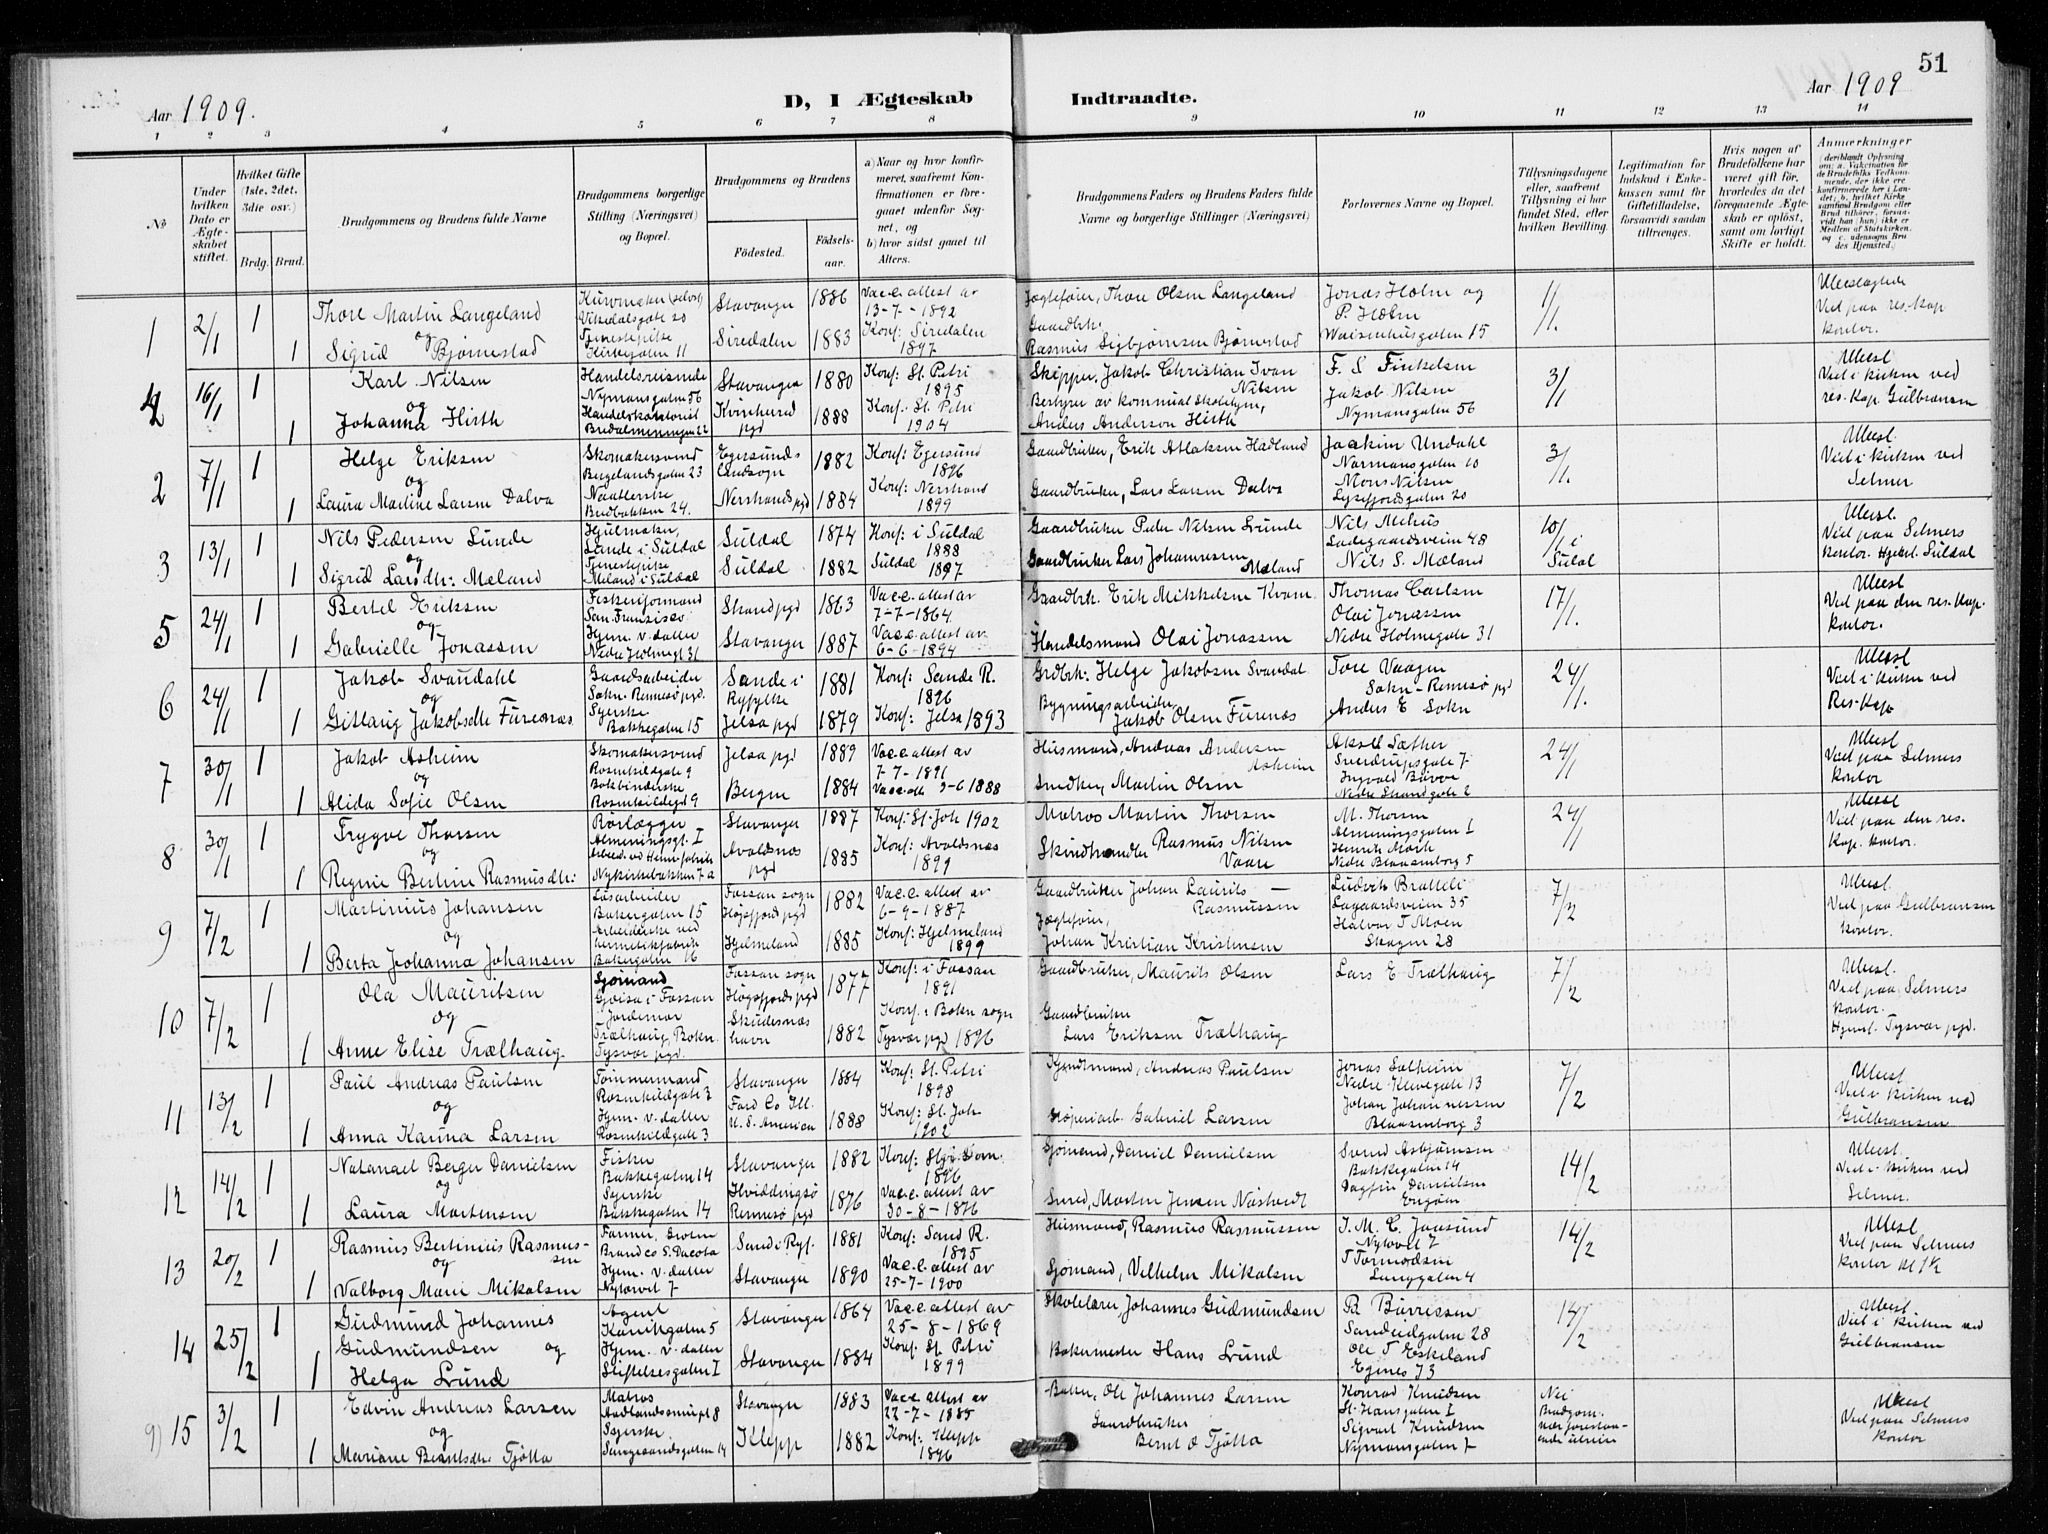 51
Aar 1909.
D, I Ægteskab Indtraadte.
Aar 1909
1 2 3 4 5 6 7 8 9 10 11 12 13 14
No
Under hvilken Dato er Ægteskabet stiftet.
Hvilket Gifte (1ste, 2det, 3die osv.)
Brdg. Brud.
Brudgommens og Brudens fulde Navne
Brudgommens borgerlige Stilling (Næringsvei) og Bopæl.
Brudgommens og Brudens
Fødested. Fødselsaar.
a) Naar og hvor konfirmeret, saafremt Konfirmationen er foregaaet udenfor Sognet, og
b) hvor sidst gaaet til Alters.
Brudgommens Faders og Brudens Faders fulde Navne og borgerlige Stillinger (Næringsvei)
Forlovernes Navne og Bopæl.
Tillysningsdagene eller, saafremt Tillysning ei har fundet Sted, efter hvilken Bevilling.
Legitimation for Indskud i Enkekassen samt for Giftetilladelse, forsaavidt saadan tiltrænges.
Hvis nogen af Brudefolkene har været gift før, hvorledes da det foregaaende Ægteskab er opløst, samt om lovligt Skifte er holdt.
Anmærkninger
(deriblandt Oplysning om: a. Vakcination for de Brudefolks Vedkommende, der ikke ere konfirmerede her i Landet; b. hvilket Kirkesamfund Brudgom eller Brud tilhører, forsaavidt han (hun) ikke er Medlem af Statskirken, og c. udensogns Brudes Hjemsted.
1 2/1 1 Thore Martin Langeland Stavanger 1886 Vac.c. attest av 13-7-1892 Jægtefører, Thore Olsen Langeland Jonas Holm og P. Holm 1/1.
og
1 Sigrid Bjørnestad Tjenestepike Kirkegaten 11 Siredalen 1883 Konf: Siredalen 1897 Gaardbrk. Rasmus Sigbjørnsen Bjørnestad Waisenhusgaten 15 Viet paa res. kap. kontor.
4 16/1 1 Karl Nilsen Handelsreisende Nymansgaten 56 Stavanger 1880 Konf: St. Petri 1895 Skipper, Jakob Christian Ivan Nilsen F. S. Finkelsen Jakob Nilsen Nymansgaten 56 3/1
og
1 Johanna Hirth Kvinherred pgd 1888 Konf: St. Petri 1904 Anders Anderson Hirth Viet i kirken ved res. Kap. Gulbransen
2 7/1 1 Helge Eriksen Skomakersvend Bergelandsgaten 23 Egersunds Landsogn 1882 Konf: Egersund 1896 Gaardbruker, Erik Atlaksen Hadland Joakim Undahl Normansgaten 10 3/1.
og
1 Laura Martine Larsen Dalva Nerstrands pgd 1884 Konf: Nerstrand 1899 Gaardbruker, Lars Larsen Dalva Mons Nilsen Lysefjordsgaten 20 Viet i kirken ved Selmer
3 13/1 1 Nils Pedersen Lunde Hjulmaker, Lunde i Suldal Suldal 1874 Konf: i Suldal 1888 Gaardbruker Peder Nilsen Lunde Nils Mehus Ladegaardsveien 48 10/1 i Suldal
og
1 Sigrid Larsdtr: Mæland Tjenestepike Mæland i Suldal Suldal 1882 Suldal 1897 Gaardbruker Lars Johannessen Mæland Nils S. Mæland Viet paa Selmers kontor. Hjemst. Suldal
5 24/1 1 Bertel Eriksen San Franzisco Strand pgd 1863 Vac.c. attest av 7-7-1864 Gaardbrk. Erik Mikkelsen Kvam Thomas Carlsen 17/1.
og
1 Gabrielle Jonassen Hjem. v. datter Nedre Holmegt 31 Stavanger 1887 Vac.c. attest av 6-6-1894 Handelsmand Olai Jonassen Olai Jonassen Nedre Holmegate 31 Viet paa den res. kap. kontor.
6 24/1 1 Jakob Svandahl Gaardsarbeider Sokn. Rennesø pgd. Sande i Ryfylke 1881 Konf: Sande R. 1896 Grdbrk: Helge Jakobsen Svandal Tore Vaagen Sokn-Rennesø pgd 24/1.
og
1 Jakobsdtr Furenæs Syerske Bakkegaten 15 Jelsa pgd 1879 Konf: Jelsa 1893 Bygningsarbeider, Jakob Olsen Furenæs Anders E Sokn Viet i kirken ved Res. Kap
7 30/1 1 Jakob Asheim Skomakersvend Rosenkildgate 9 Jelsa pgd 1889 Vac.c. attest av 7-7-1891 Husmand, Andreas Andersen Asheim Aksel Sæther Sverdrupsgate 7 24/1
og
1 Alida Sofie Olsen Bokbinderske Rosenkildegt 9 Bergen 1884 Snedker, Martin Olsen Ingvald Bøvre Nedre Strandgate 2 Viet paa Selmers kontor
8 30/1 1 Trygve Thorsen Rørlægger Almeningsgt. I Stavanger 1887 Konf: St. Joh 1902 Matros Martin Thorsen M. Thorsen Almeningsgaten I 24/1
og
1 Regine Bertine Rasmusdtr: Nykirkebakken 7a Avaldsnæs pgd 1885 Konf: Avaldsnæs 1899 Skindhandler Rasmus Nilsen Vaare Nedre Blaasenborg 5 Viet paa den res. kap. kontor.
9 7/2 1 Martinius Johansen Løsarbeider Bakergaten 15 Fossan sogn Høgsfjord pgd 1882 Vac.c. attest av 6-9-1887 Gaardbruker Johan Laurits Rasmussen Ludvik Bratteli Lagaardsveien 35 7/2
og
1 Berta Johanna Johansen Arbeiderske ved hermetikfabrik Bakergaten 16 Hjelmeland 1885 Konf: Hjelmeland 1899 Jægtefører, Johan Kristian Kristensen Halvor T Moen Skagen 28 Viet paa Gulbransen kontor.
10 7/2 1 Ola Mauritsen Sjømand Fossan Fossan sogn Høgsfjords pgd 1877 Konf: i Fossan 1891 Gaardbruker, Maurits Olsen Lars E Trælhaug 7/2
og
1 Anne Elise Trælhaug Jordemor Trælhaug, Bokn. Tysvær pgd. Skudesnæshavn 1882 Konf. i Bokn sogn Tysvær pgd 1896 Gaardbruker Lars Eriksen Trælhaug Viet paa Selmers kontor. Hjemst. Tysvær pgd.
11 13/2 1 Paul Andreas Paulsen Tømmermand Rosenkildgate 3 Stavanger 1884 Konf: St. Petri 1898 Andreas Paulsen Jonas Solheim Nedre Klevegate 13 7/2
og
1 Anna Karina Larsen Hjem. v. datter Rosenkildgate 3 Ford Co Ill. U.S. America 1888 Konf: St. Joh. 1902 Gabriel Larsen Johan Johannessen Blaasenborg 3 Viet i kirken ved Gulbransen
12 14/2 1 Natanael Berger Danielsen Fisker Bakkegaten 14 Stavanger 1882 1896 Sjømand, Daniel Danielsen Svend Asbjørnsen Bakkegaten 14 14/2
og
1 Laura Mortensen Syerske Bakkegaten 14 Hviddingsø Rennesø pgd 1876 Vac.c. attest av 30-8-1876 Smed, Morten Jensen Dagfin Danielsen Engøen Viet i kirken ved Selmer.
13 20/2 1 Rasmus Bertinius Rasmussen Farmer, Groton Brand co S. Dacota Sand i Ryf. 1881 Konf: Sand R. 1895 Husmand, Rasmus Rasmussen J. M. C. Jaasund Nytorvet 7 14/2
og
1 Valborg Marie Mikalsen Hjem. v. datter Nytorvet 7 Stavanger 1890 Vac.c. attest av 25-7-1900 Sjømand, Vilhelm Mikalsen T Tormodsen Langgaten 4 Viet paa Selmers kontor
14 25/2 1 Gudmund Johannes Gudmundsen Agent Kanikgaten 5 Stavanger 1864 Vac.c. attest av 25-8-1869 Skolelærer Johannes Gudmundsen Sandeidgaten 28 14/2
og
1 Helga Lund Hjem. v. datter Stiftelsesgaten I Stavanger 1884 Konf: St. Petri 1899 Bakermester Hans Lund Ole T Eskeland Egenes 73 Viet i kirken ved Gulbransen
15 3/2 1 Edvin Andreas Larsen Matros Stavanger 1883 Vac.c. attest av 22-7-1885 Ole Johannes Larsen Konrad Knudsen St. Hansgaten I Nei
og
1 Mariane Berntsdtr: Tjøtta Syerske Klepp 1882 Konf: Klepp 1896 Gaardbruker Bernt O Tjøtta Sigvart Knudsen Nymansgaten 7 Viet paa Selmers kontor